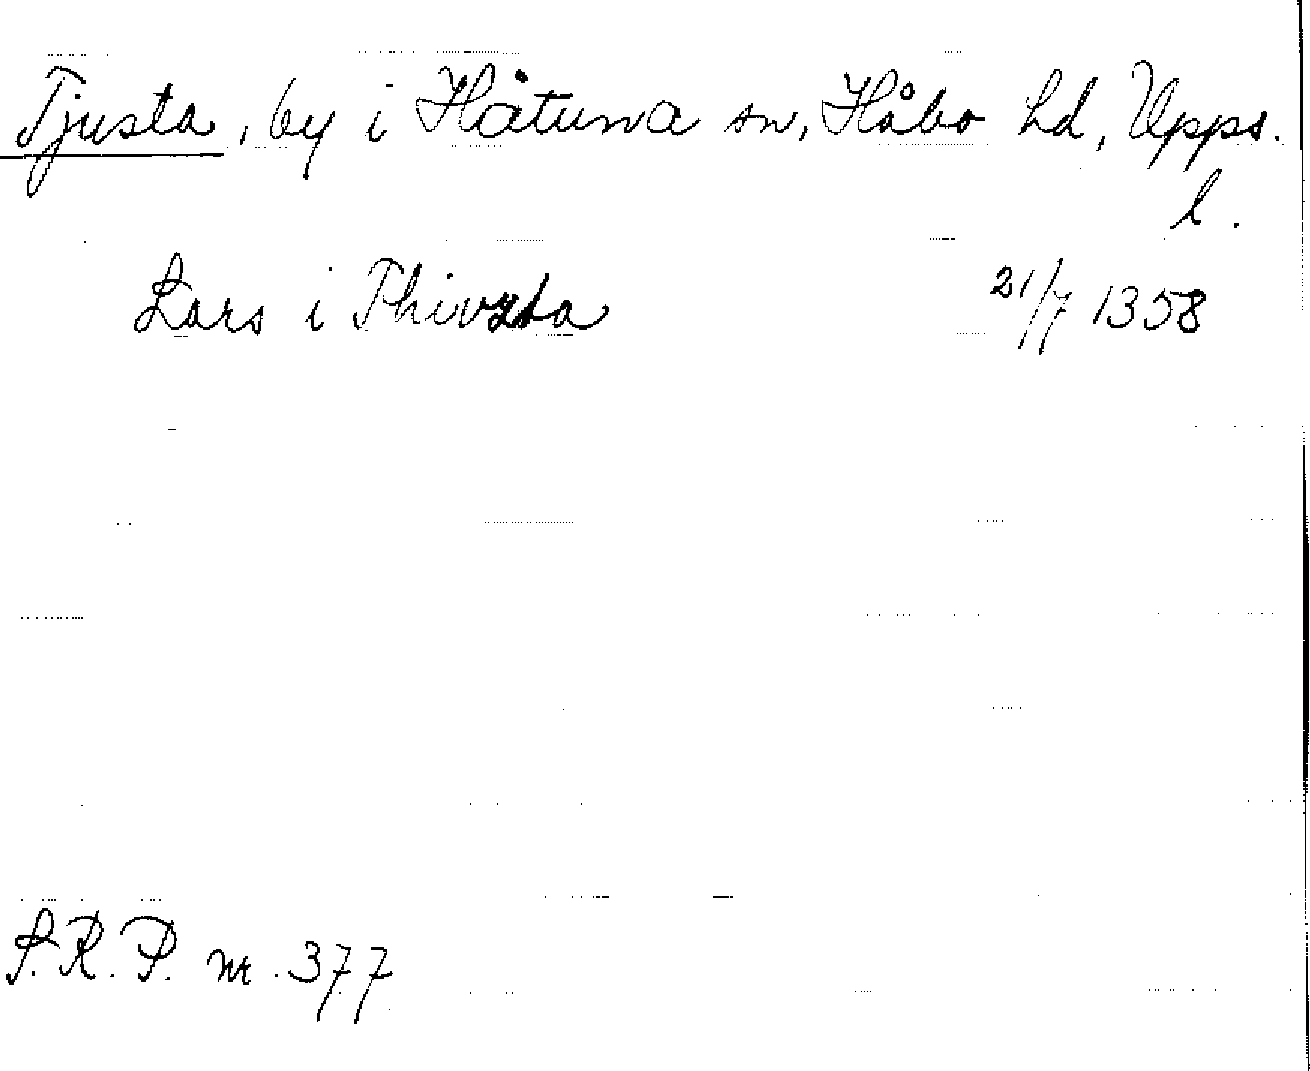 Tjusta, by i Håtuna sn, Håbo hd, Upps.
l.
Lars i Thivzta 21/7 1358
S.R.P. nr. 377